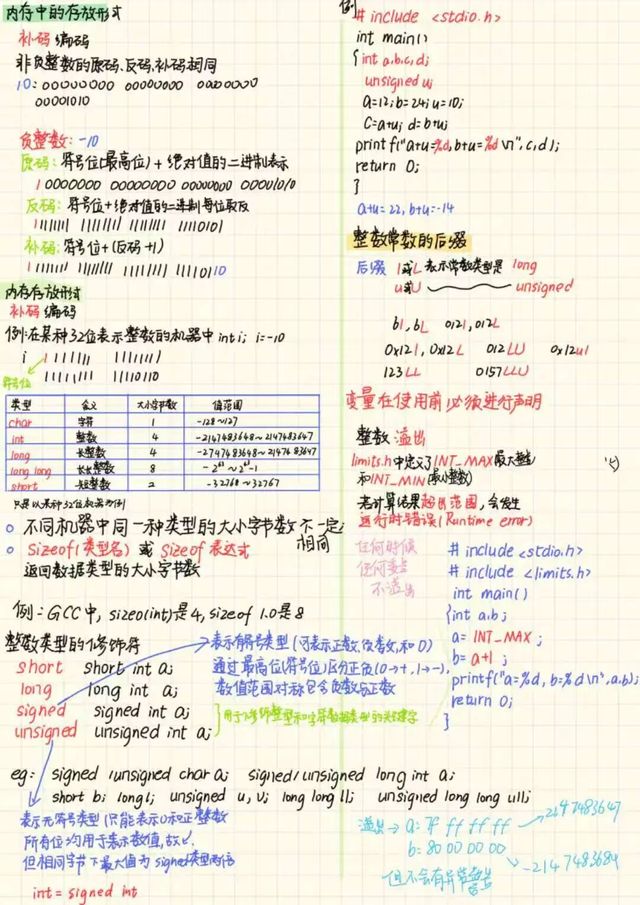 内存中的存放形式
补码编码
非负整数的原码、反码、补码相同
10: 00000000 00000000 00000000
00001010
负整数: -10
原码: 符号位(最高位) + 绝对值的二进制表示
1 0000000 00000000 00000000 00001010
反码: 符号位+绝对值的二进制每位取反
1 1111111 11111111 11111111 11110101
补码: 符号位+(反码+1)
1 1111111 11111111 11111111 11110110
内存存放形式
补码编码
例:在某种32位表示整数的机器中 int i; i=-10
i 1 1111111 11111111
11111111 11110110
符号位
类型 含义 大小字节数 值范围
char 字符 1 -128~127
int 整数 4 -2147483648~2147483647
long 长整数 4 -2747483648~2147483647
long long 长长整数 8 -2^63~2^63-1
short 短整数 2 -32768~32767
只是以某种32位机器为例
不同机器中同一种类型的大小字节数不一定相同
sizeof(类型名) 或 sizeof 表达式
返回数据类型的大小字节数
例: GCC中, sizeo(int)是4, sizeof 1.0是8
整数类型的修饰符
short short int a;
long long int a;
signed signed int a;
unsigned unsigned int a;
表示有符号类型 (可表示正数,负数,和0)
通过最高位(符号位)区分正负(0→+, 1→-),
数值范围对称包含负数与正数
用于修饰整型和字符数据类型的关键字
eg: signed /unsigned char a; signed/unsigned long int a;
short b; long l; unsigned u, v; long long ll; unsigned long long ull;
表示无符号类型 (只能表示0和正整数
所有位均用于表示数值,故
但相同字节下最大值为signed类型两倍
int = signed int
例
# include <stdio.h>
int main()
{int a,b,c,d;
unsigned u;
a=12; b=-24; u=10;
c=a+u; d=b+u;
printf("a+u=%d, b+u=%d \n", c,d);
return 0;
}
a+u=22, b+u=-14
整数常数的后缀
后缀 l或L 表示常数类型是 long
u或U unsigned
61, 6L 0121, 012L
0x121, 0x12L 012LU 0x12ul
123LL 0157LLU
变量在使用前必须进行声明
整数溢出
limits.h中定义了INT_MAX(最大整数
和INT_MIN(最小整数)
若计算结果超出范围,会发生
运行时错误(Runtime error)
任何时候
任何
不溢出
# include <stdio.h>
# include <limits.h>
int main()
{int a,b;
a= INT_MAX ;
b= a+1 ;
printf("a=%d, b=%d \n", a,b);
return 0;
}
溢出→ a: 7f ff ff ff → 2147483647
b: 80 00 00 00 → -2147483684
但不会有异常警告